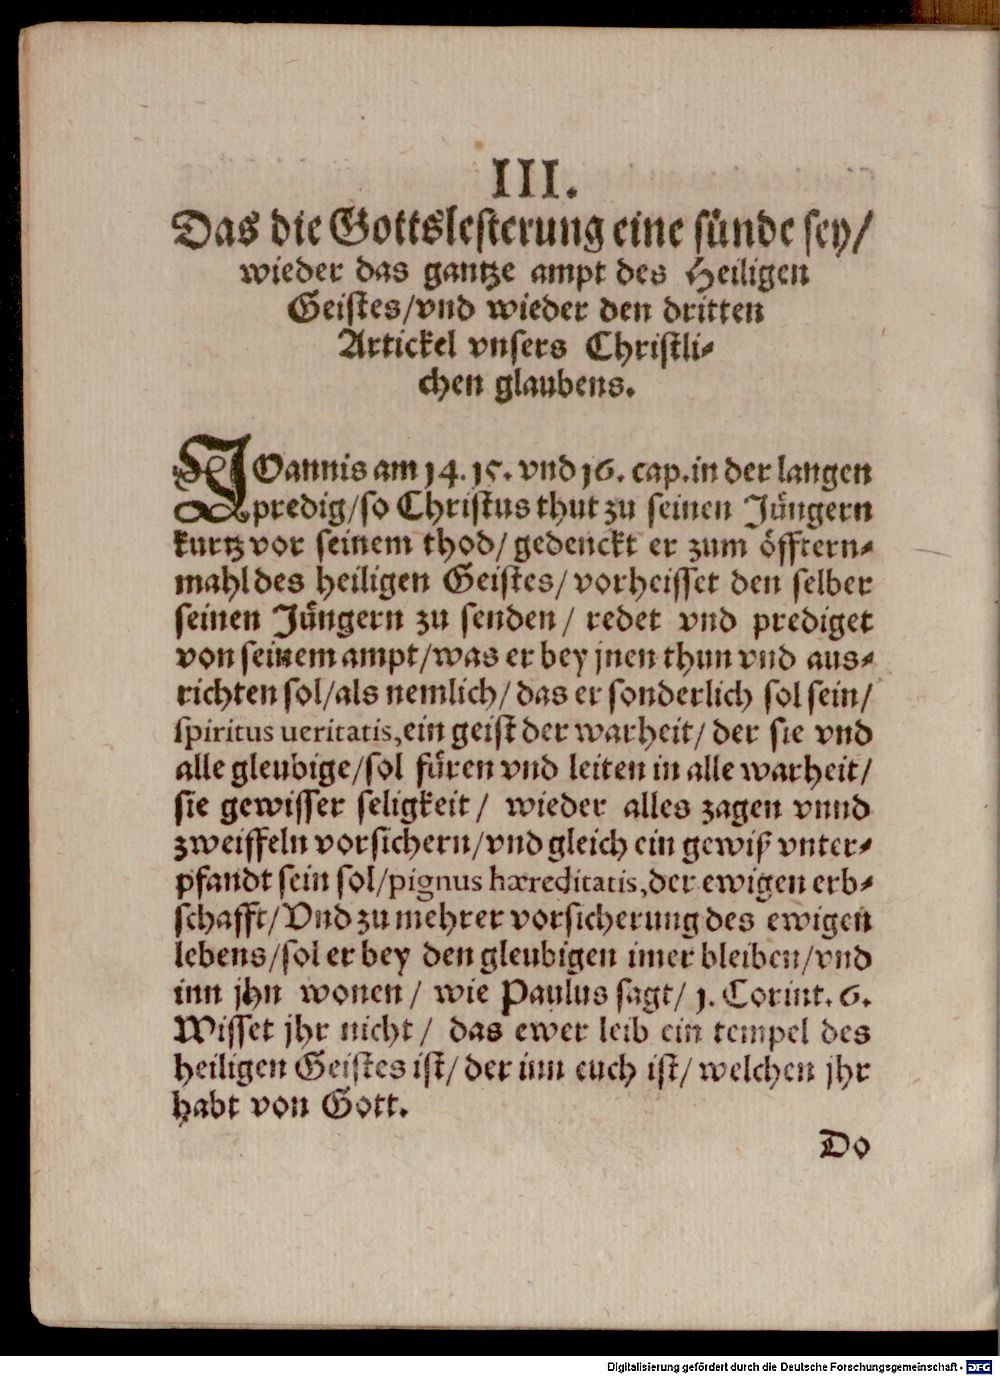 III.
Das die Gottslesterung eine sünde sey/
wieder das gantze ampt des Heiligen
Geistes/vnd wieder den dritten
Artickel vnsers Christli-
chen glaubens.
JOannis am 14. 15. vnd 16. cap. in der langen
predig/so Christus thut zu seinen Jüngern
kurtz vor seinem thod/ gedenckt er zum öfftern-
mahl des heiligen Geistes/ vorheisset den selber
seinen Jüngern zu senden/ redet vnd prediget
von seinem ampt/was er bey jnen thun vnd aus-
richten sol/als nemlich/ das er sonderlich sol sein/
spiritus ueritatis, ein geist der warheit/ der sie vnd
alle gleubige/sol füren vnd leiten in alle warheit/
sie gewisser seligkeit/ wieder alles zagen vnnd
zweiffeln vorsichern/vnd gleich ein gewiß vnter-
pfandt sein sol/pignus hæreditatis, der ewigen erb-
schafft/Vnd zu mehrer vorsicherung des ewigen
lebens/sol er bey den gleubigen imer bleiben/vnd
inn jhn wonen/ wie Paulus sagt/ 1. Corint. 6.
Wisset jhr nicht/ das ewer leib ein tempel des
heiligen Geistes ist/ der inn euch ist/ welchen jhr
habt von Gott.
Do
Digitalisierung gefördert durch die Deutsche Forschungsgemeinschaft - DFG